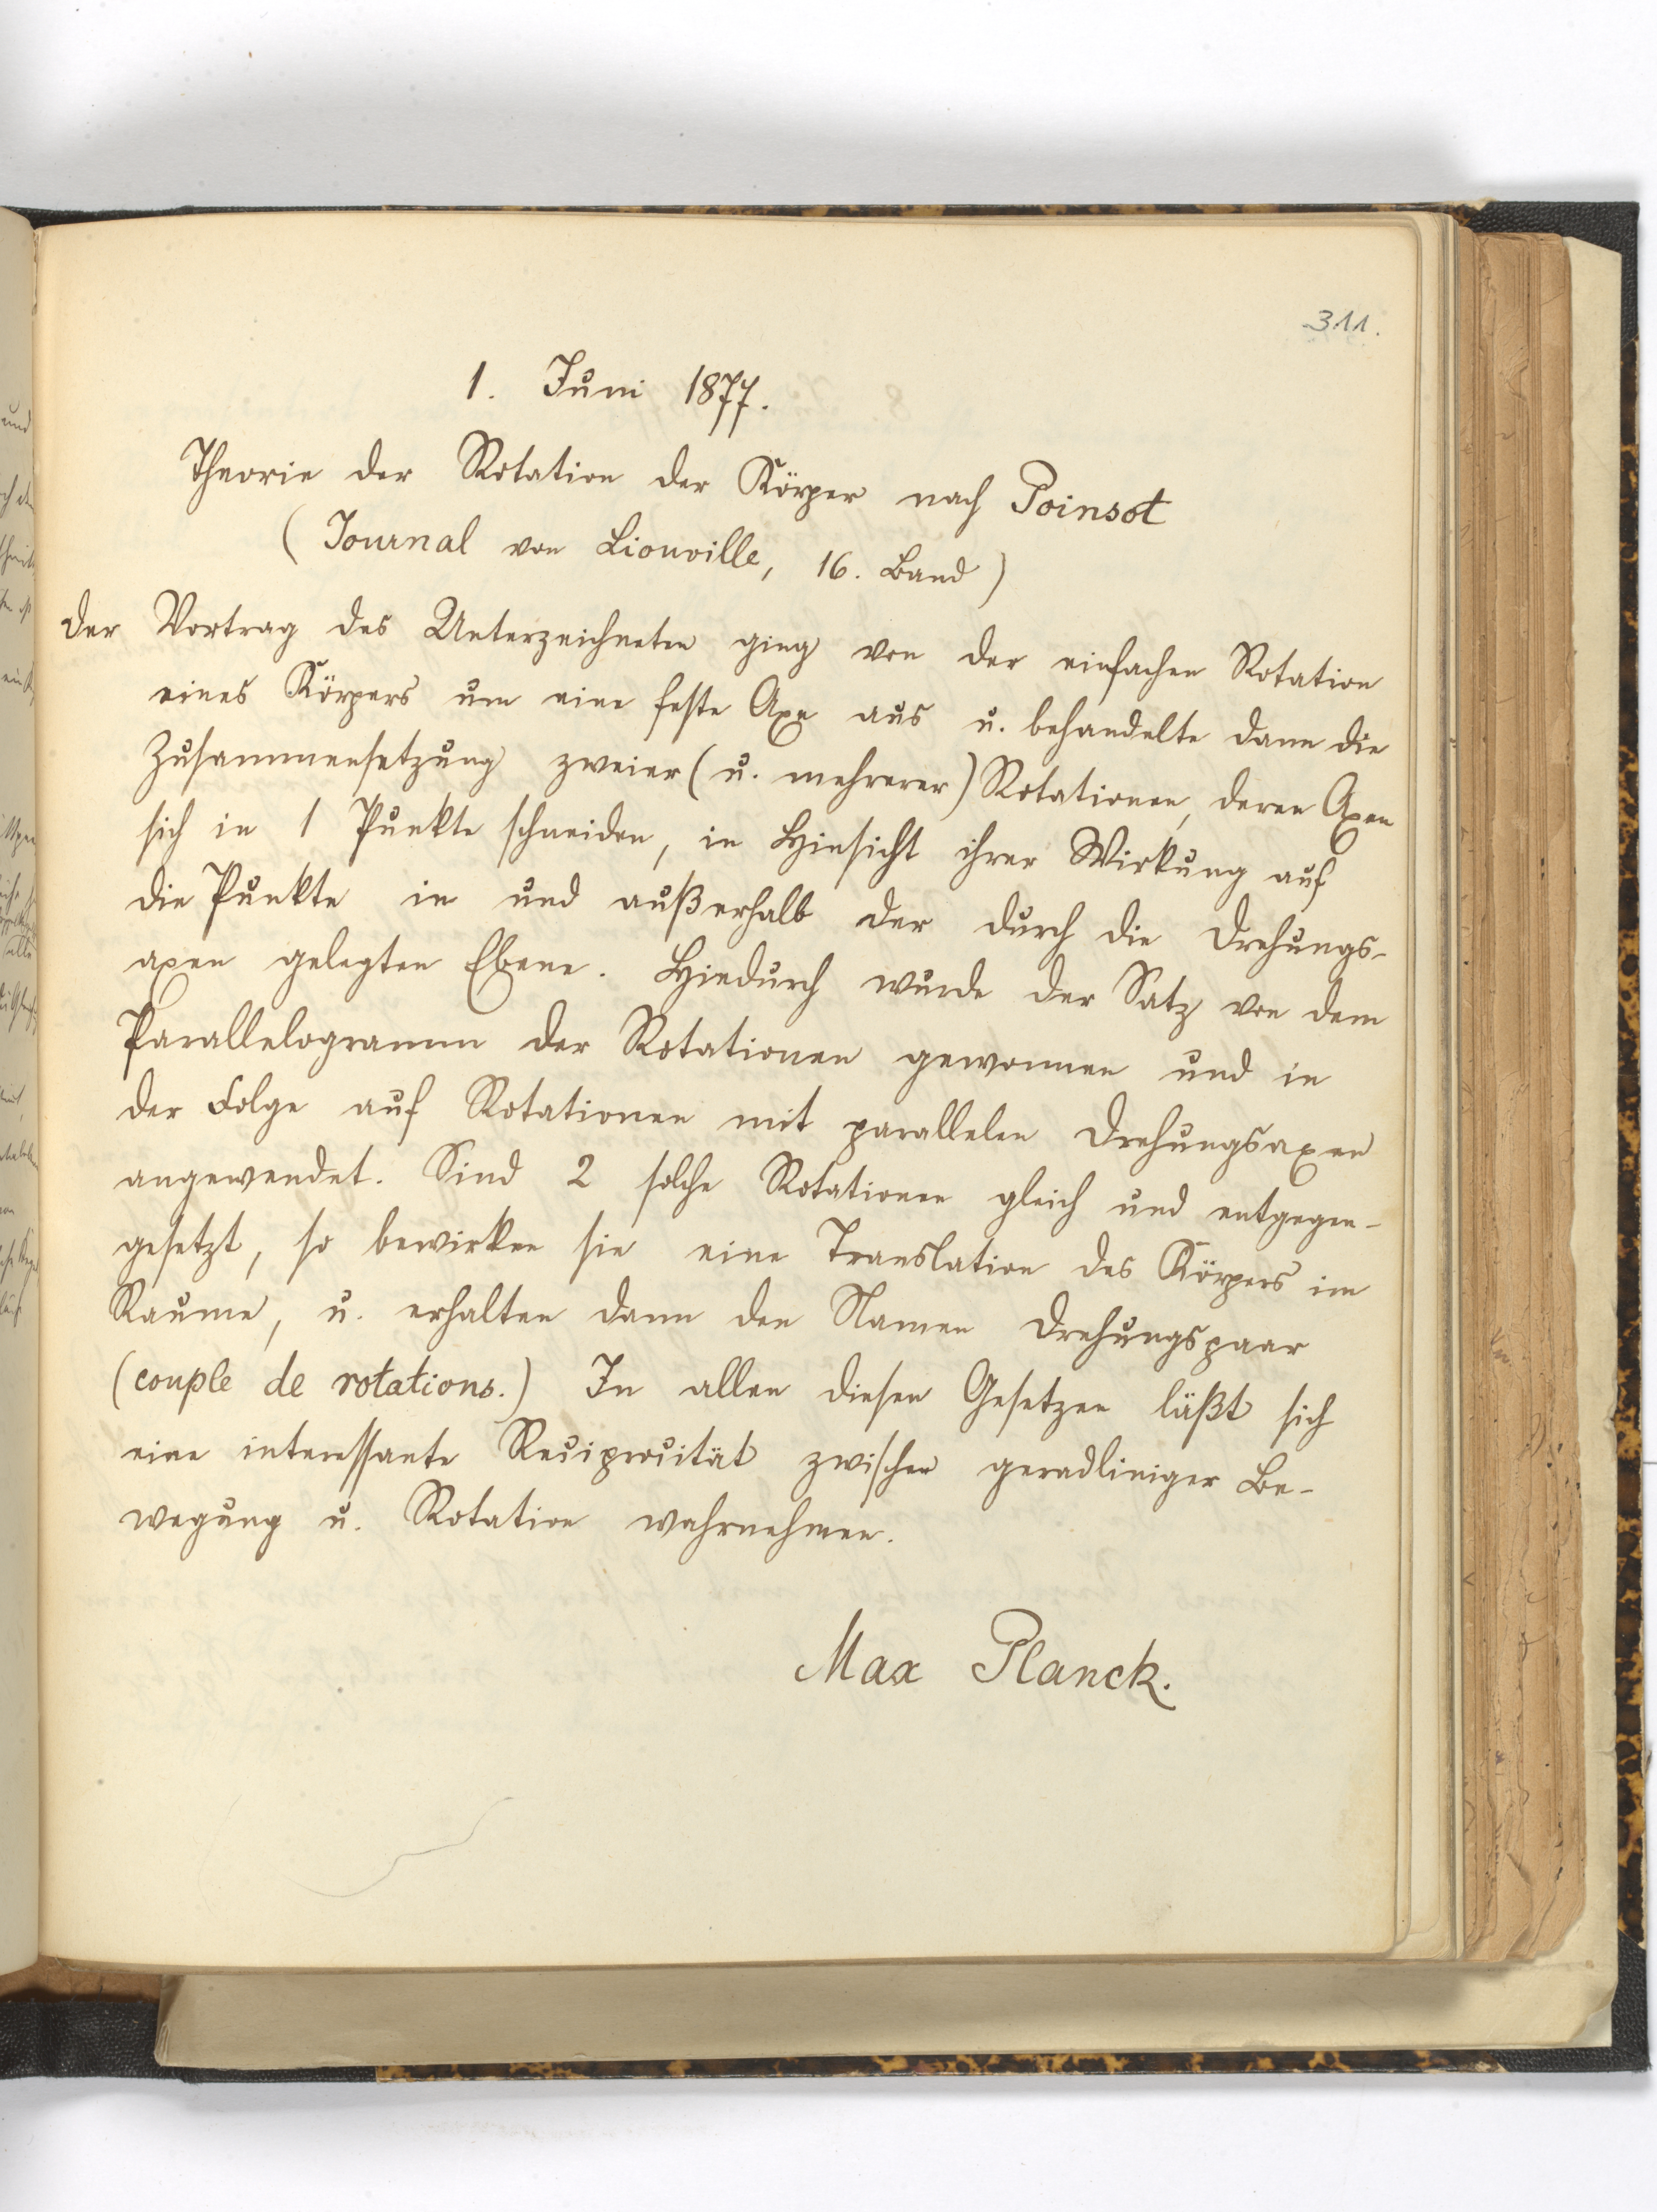 311.
1. Juni 1877.
Theorie der Rotation der Körper nach Poinsot
(Journal von Liouville, 16. Band)
Der Vortrag des Unterzeichneten ging von der einfachen Rotation
eines Körpers um eine feste Axe aus u. behandelte dann die
Zusammensetzung zweier (u. mehrerer) Rotationen, deren Axen
sich in 1 Punkte schneiden, in Hinsicht ihrer Wirkung auf
die Punkte in und außerhalb der durch die Drehungs-
axen gelegten Ebene. Hiedurch wurde der Satz von dem
Parallelogramm der Rotationen gewonnen und in
der Folge auf Rotationen mit parallelen Drehungsaxen
angewendet. Sind 2 solche Rotationen gleich und entgegen-
gesetzt, so bewirken sie eine Translation des Körpers im
Raume, u. erhalten dann den Namen Drehungspaar
(couple de rotations.) In allen diesen Gesetzen läßt sich
eine interessante Reciprocität zwischen geradliniger Be-
wegung u. Rotation wahrnehmen.
Max Planck.